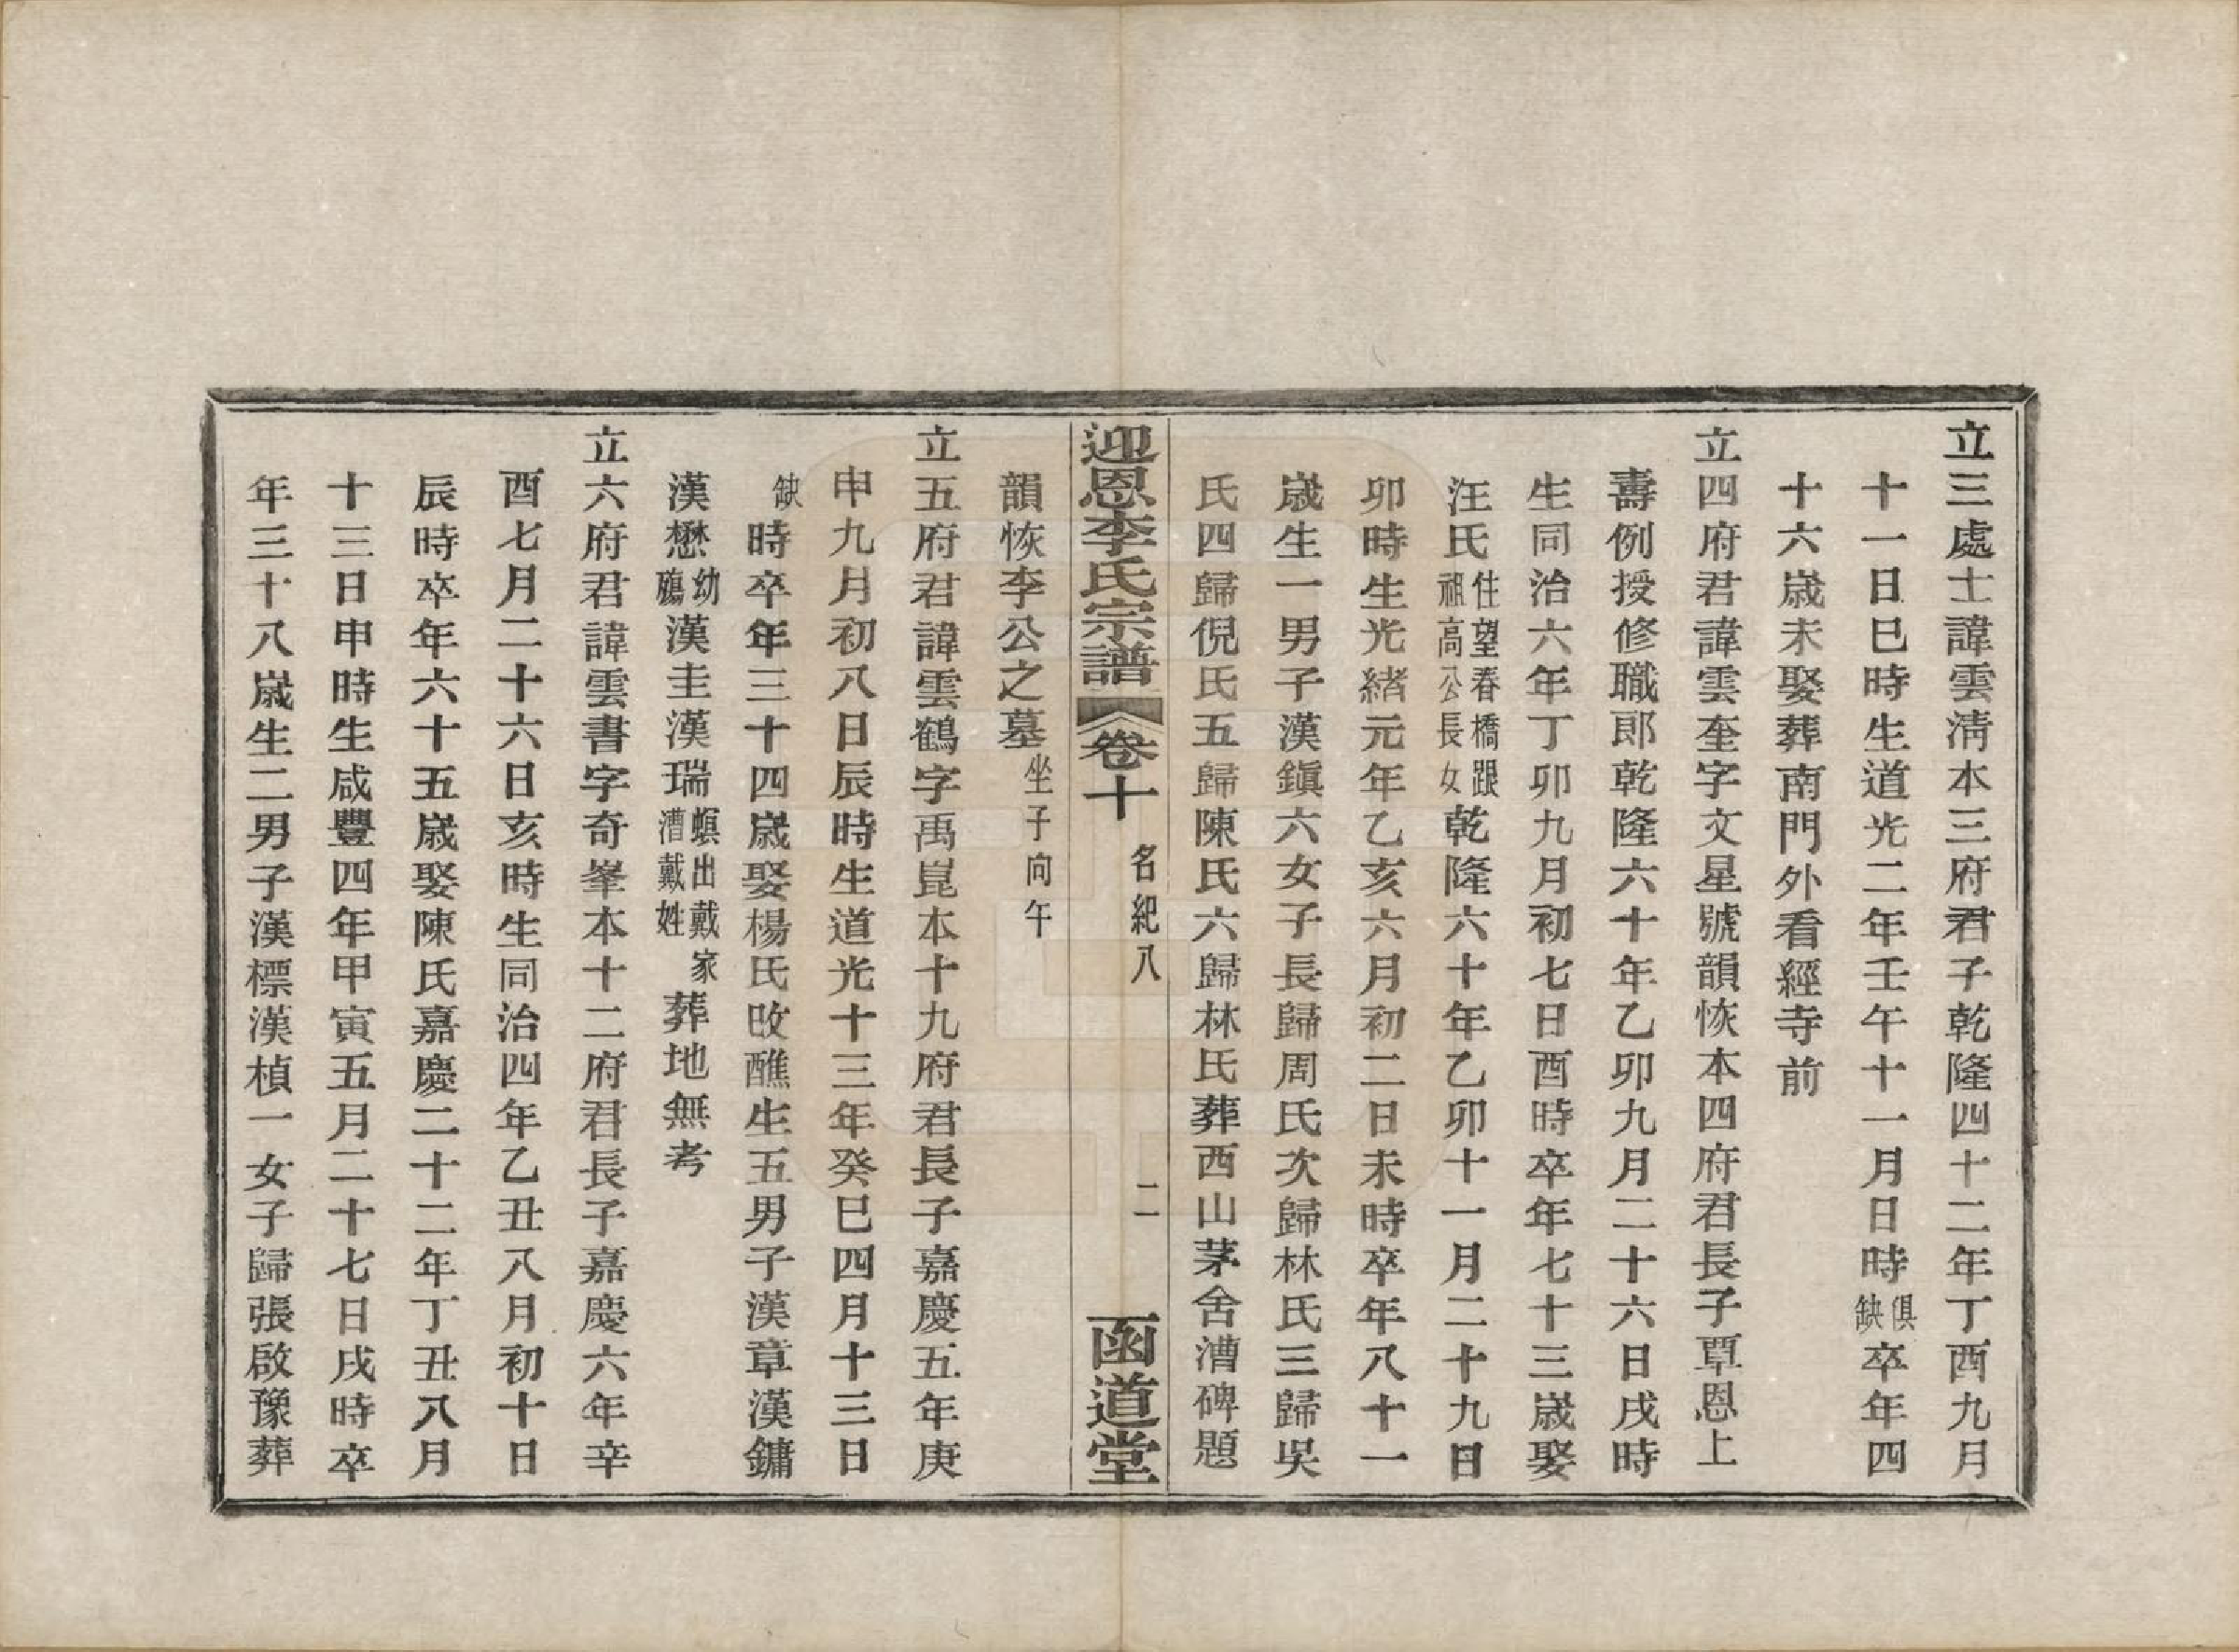 立三處士諱雲淸本三府君子乾隆四十二年丁酉九月
十一日巳時生道光二年壬午十一月日時俱缺卒年四
十六歲未娶葬南門外看經寺前
立四府君諱雲奎字文星號韻恢本四府君長子覃恩上
壽例授修職郎乾隆六十年乙卯九月二十六日戌時
生同治六年丁卯九月初七日酉時卒年七十三歲娶
汪氏住望春橋跟祖高公長女乾隆六十年乙卯十一月二十九日
卯時生光緖元年乙亥六月初二日未時卒年八十一
歲生一男子漢鎭六女子長歸周氏次歸林氏三歸吳
氏四歸倪氏五歸陳氏六歸林氏葬西山茅舍漕碑題
迎恩李氏宗譜 卷十 名紀八 二 函道堂
韻恢李公之墓坐子向午
立五府君諱雲鶴字禹崑本十九府君長子嘉慶五年庚
申九月初八日辰時生道光十三年癸巳四月十三日
缺時卒年三十四歲娶楊氏改醮生五男子漢章漢鏞
漢懋幼殤漢圭漢瑞螟出戴家漕戴姓葬地無考
立六府君諱雲書字奇峯本十二府君長子嘉慶六年辛
酉七月二十六日亥時生同治四年乙丑八月初十日
辰時卒年六十五歲娶陳氏嘉慶二十二年丁丑八月
十三日申時生咸豐四年甲寅五月二十七日戌時卒
年三十八歲生二男子漢標漢楨一女子歸張啟豫葬